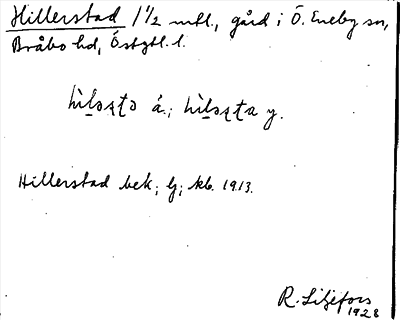 Hillerstad 1 1/2 mtl., gård i Ö. Eneby sn,
Bråbo hd, Östgtl. l.
hìl̠əʂʈə ä.; hìl̠əʂʈa y.
Hillerstad bek; lj; kb. 1913.
R. Liljefors
1928